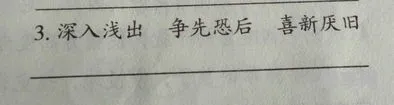 3. 深入浅出 争先恐后 喜新厌旧